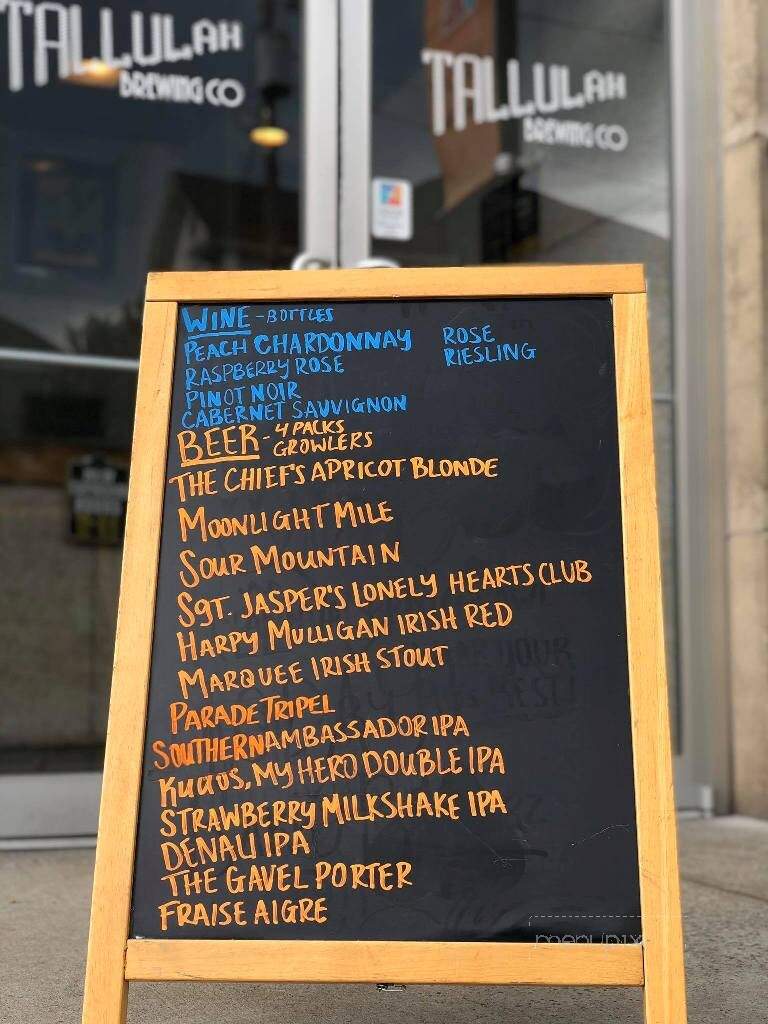 TALLULAH
BREWING CO
TALLULAH
BREWING CO
WINE - BOTTLES
PEACH CHARDONNAY ROSE
RASPBERRY ROSE RIESLING
PINOT NOIR
CABERNET SAUVIGNON
BEER - 4 PACKS
GROWLERS
THE CHIEF'S APRICOT BLONDE
MOONLIGHT MILE
SOUR MOUNTAIN
SGT. JASPER'S LONELY HEARTS CLUB
HARPY MULLIGAN IRISH RED
MARQUEE IRISH STOUT
PARADE TRIPEL
SOUTHERN AMBASSADOR IPA
KUDOS, MY HERO DOUBLE IPA
STRAWBERRY MILKSHAKE IPA
DENALI IPA
THE GAVEL PORTER
FRAISE AIGRE
menupix